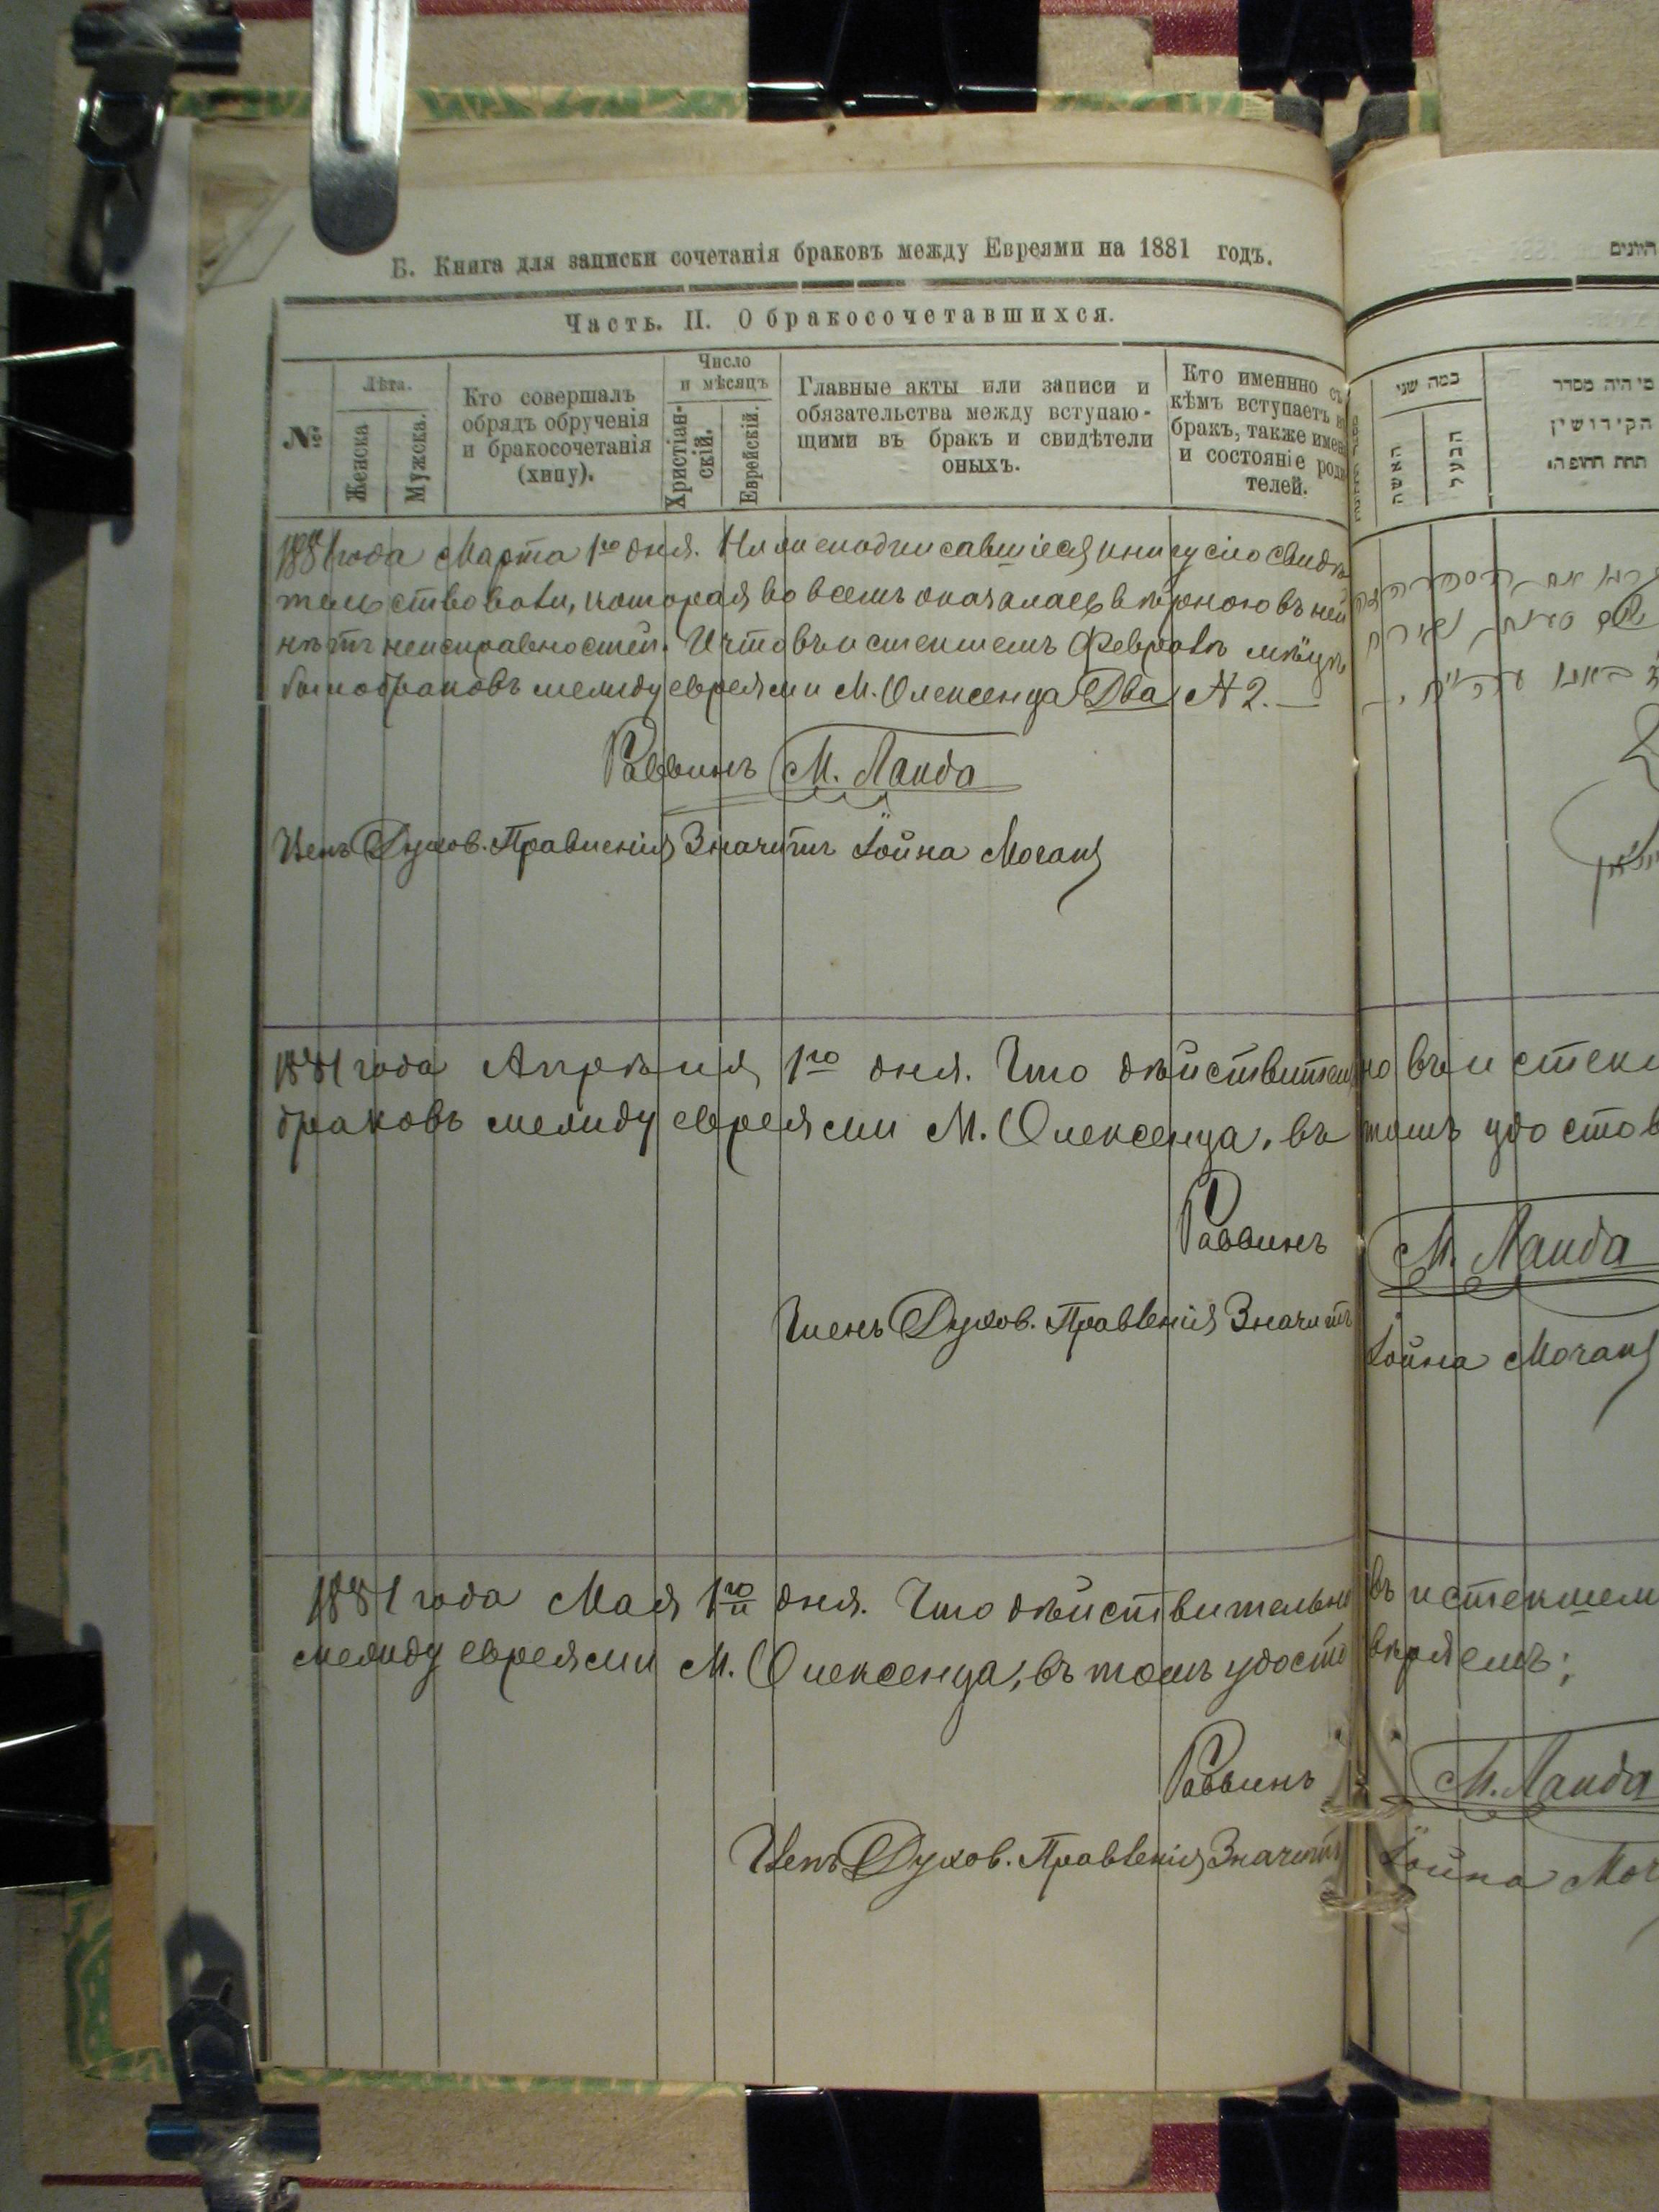 Б. Книга для записки сочетанія браковъ между Евреями на 1881 годъ.
Часть. II. О бракосочетавшихся.
№
Лѣта.
Женска
Мужска.
Кто совершалъ
обрядъ обрученія
и бракосочетанія
(хипу).
Число
и мѣсяцъ
Христіан-
скій.
Еврейскій.
Главные акты или записи и
обязательства между вступаю-
щими въ бракъ и свидѣтели
оныхъ.
Кто именнно съ
кѣмъ вступаетъ
бракъ, также
и состояніе
телей.
1881 года Марта 1го дня. Нижеподписавшіеся книгу сію свидѣ
тельствовали, которая во всемъ оказалась вѣрною въ ней
нѣтъ неисправностей. И что въ истекшемъ Февралѣ мѣцѣ
было браковъ между евреями М. Олексенца Два № 2.
Раввинъ М. Ланда
Членъ Духов. Правленія Значитъ
1881 года Апрѣля 1го дня. Что дѣйствительно въ истек
браковъ между евреями М. Олексенца, въ томъ удостов
Раввинъ М. Ланда
Членъ Духов. Правленія Значитъ
1881 года Мая 1го дня. Что дѣйствительно въ истекшем
между евреями М. Олексенца, въ томъ удостовѣряемъ;
Раввинъ М. Ланда
Членъ Духов. Правленія Значитъ
במה שני
האשה
הבעל
מי היה מסדר
הקידושין
תחת החופה